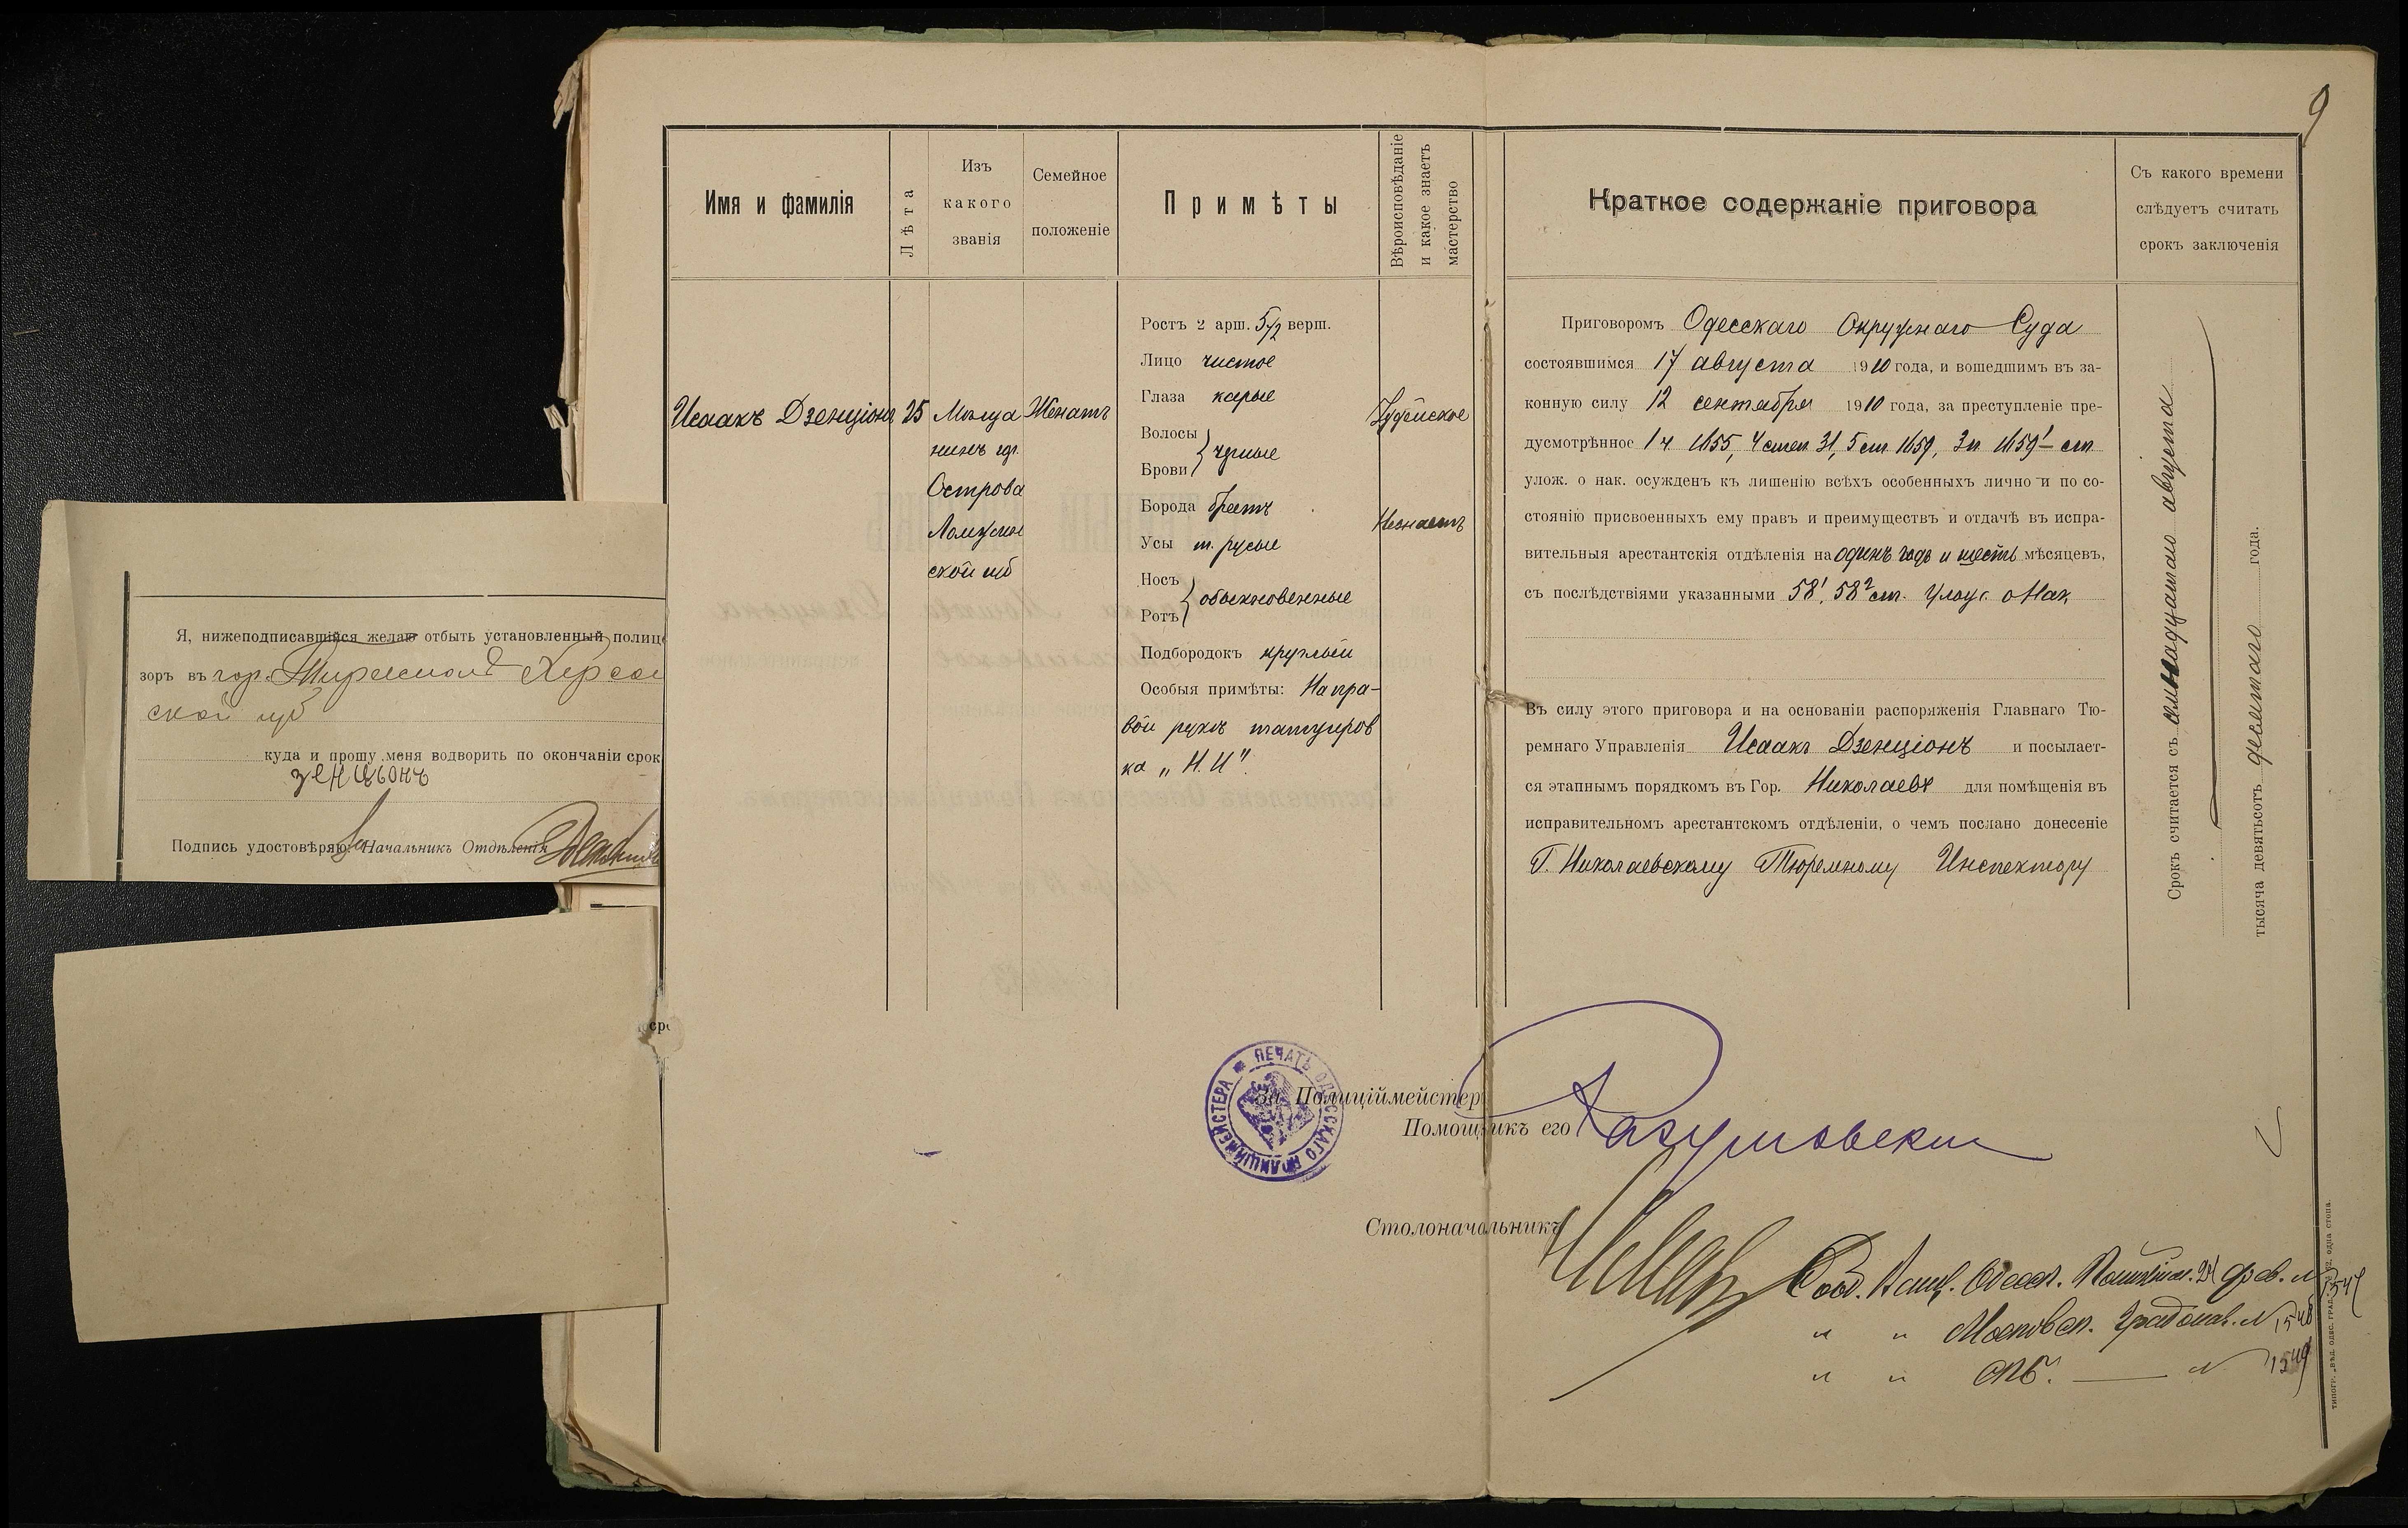 9
Имя и фамилія
Лѣта
Изъ
какого
званія
Семейное
положеніе
Примѣты
Вѣроисповѣданіе
и какое знаетъ
мастерство
Краткое содержаніе приговора
Съ какого времени
слѣдуетъ считать
срокъ заключенія
Исаакъ Дзенціонъ
25
Мѣща
нинъ гор.
Острова
Ломжин
ской губ
Женатъ
Ростъ 2 арш. 5 1/2 верш.
Лицо чистое
Глаза карые
Волосы
Брови
черные
Борода бреетъ
Усы т. русые
Носъ
Ротъ
обыкновенные
Подбородокъ круглый
Особыя примѣты: На пра-
вой рукѣ татуиров
ка „Н. И".
Іудейское
Незнаетъ
Приговоромъ Одесскаго Окружнаго Суда
состоявшимся 17 августа 1910 года, и вошедшимъ въ за-
конную силу 12 сентября 1910 года, за преступленіе пре-
дусмотрѣнное 1 ч. 1655, 4 степ. 31, 5 ст. 1659, 3 п 1659¹ ст
улож. о нак. осужденъ къ лишенію всѣхъ особенныхъ лично и по со-
стоянію присвоенныхъ ему правъ и преимуществъ и отдачѣ въ испра-
вительныя арестантскія отдѣленія на одинъ годъ и шесть мѣсяцевъ,
съ послѣдствіями указанными 58¹, 58² ст. Улож. о Нак,
Въ силу этого приговора и на основаніи распоряженія Главнаго Тю-
ремнаго Управленія Исаакъ Дзенціонъ и посылает-
ся этапнымъ порядкомъ въ Гор. Николаевъ для помѣщенія въ
исправительномъ арестантскомъ отдѣленіи, о чемъ послано донесеніе
Г. Николаевскому Тюремному Инспектору
Срокъ считается съ семнадцатаго августа
тысяча девятьсотъ десятаго года.
Я, нижеподписавшійся желаю отбыть установленный полице
зоръ въ гор. Тирасполь Херсон
ской губ
куда и прошу меня водворить по окончаніи срок
зенцьонъ
Подпись удостовѣряю: Начальникъ Отдѣленія
сро
ПЕЧАТЬ ОДЕССКАГО ПОЛИЦІЙМЕЙСТЕРА
За Полиціймейстер
Помощникъ его
Столоначальникъ
Сооб. Канц. Одесск. Полицейм. 24 фев. № 1547
" " Московск. Градонач. № 1548
" " СПБ. — № 1549